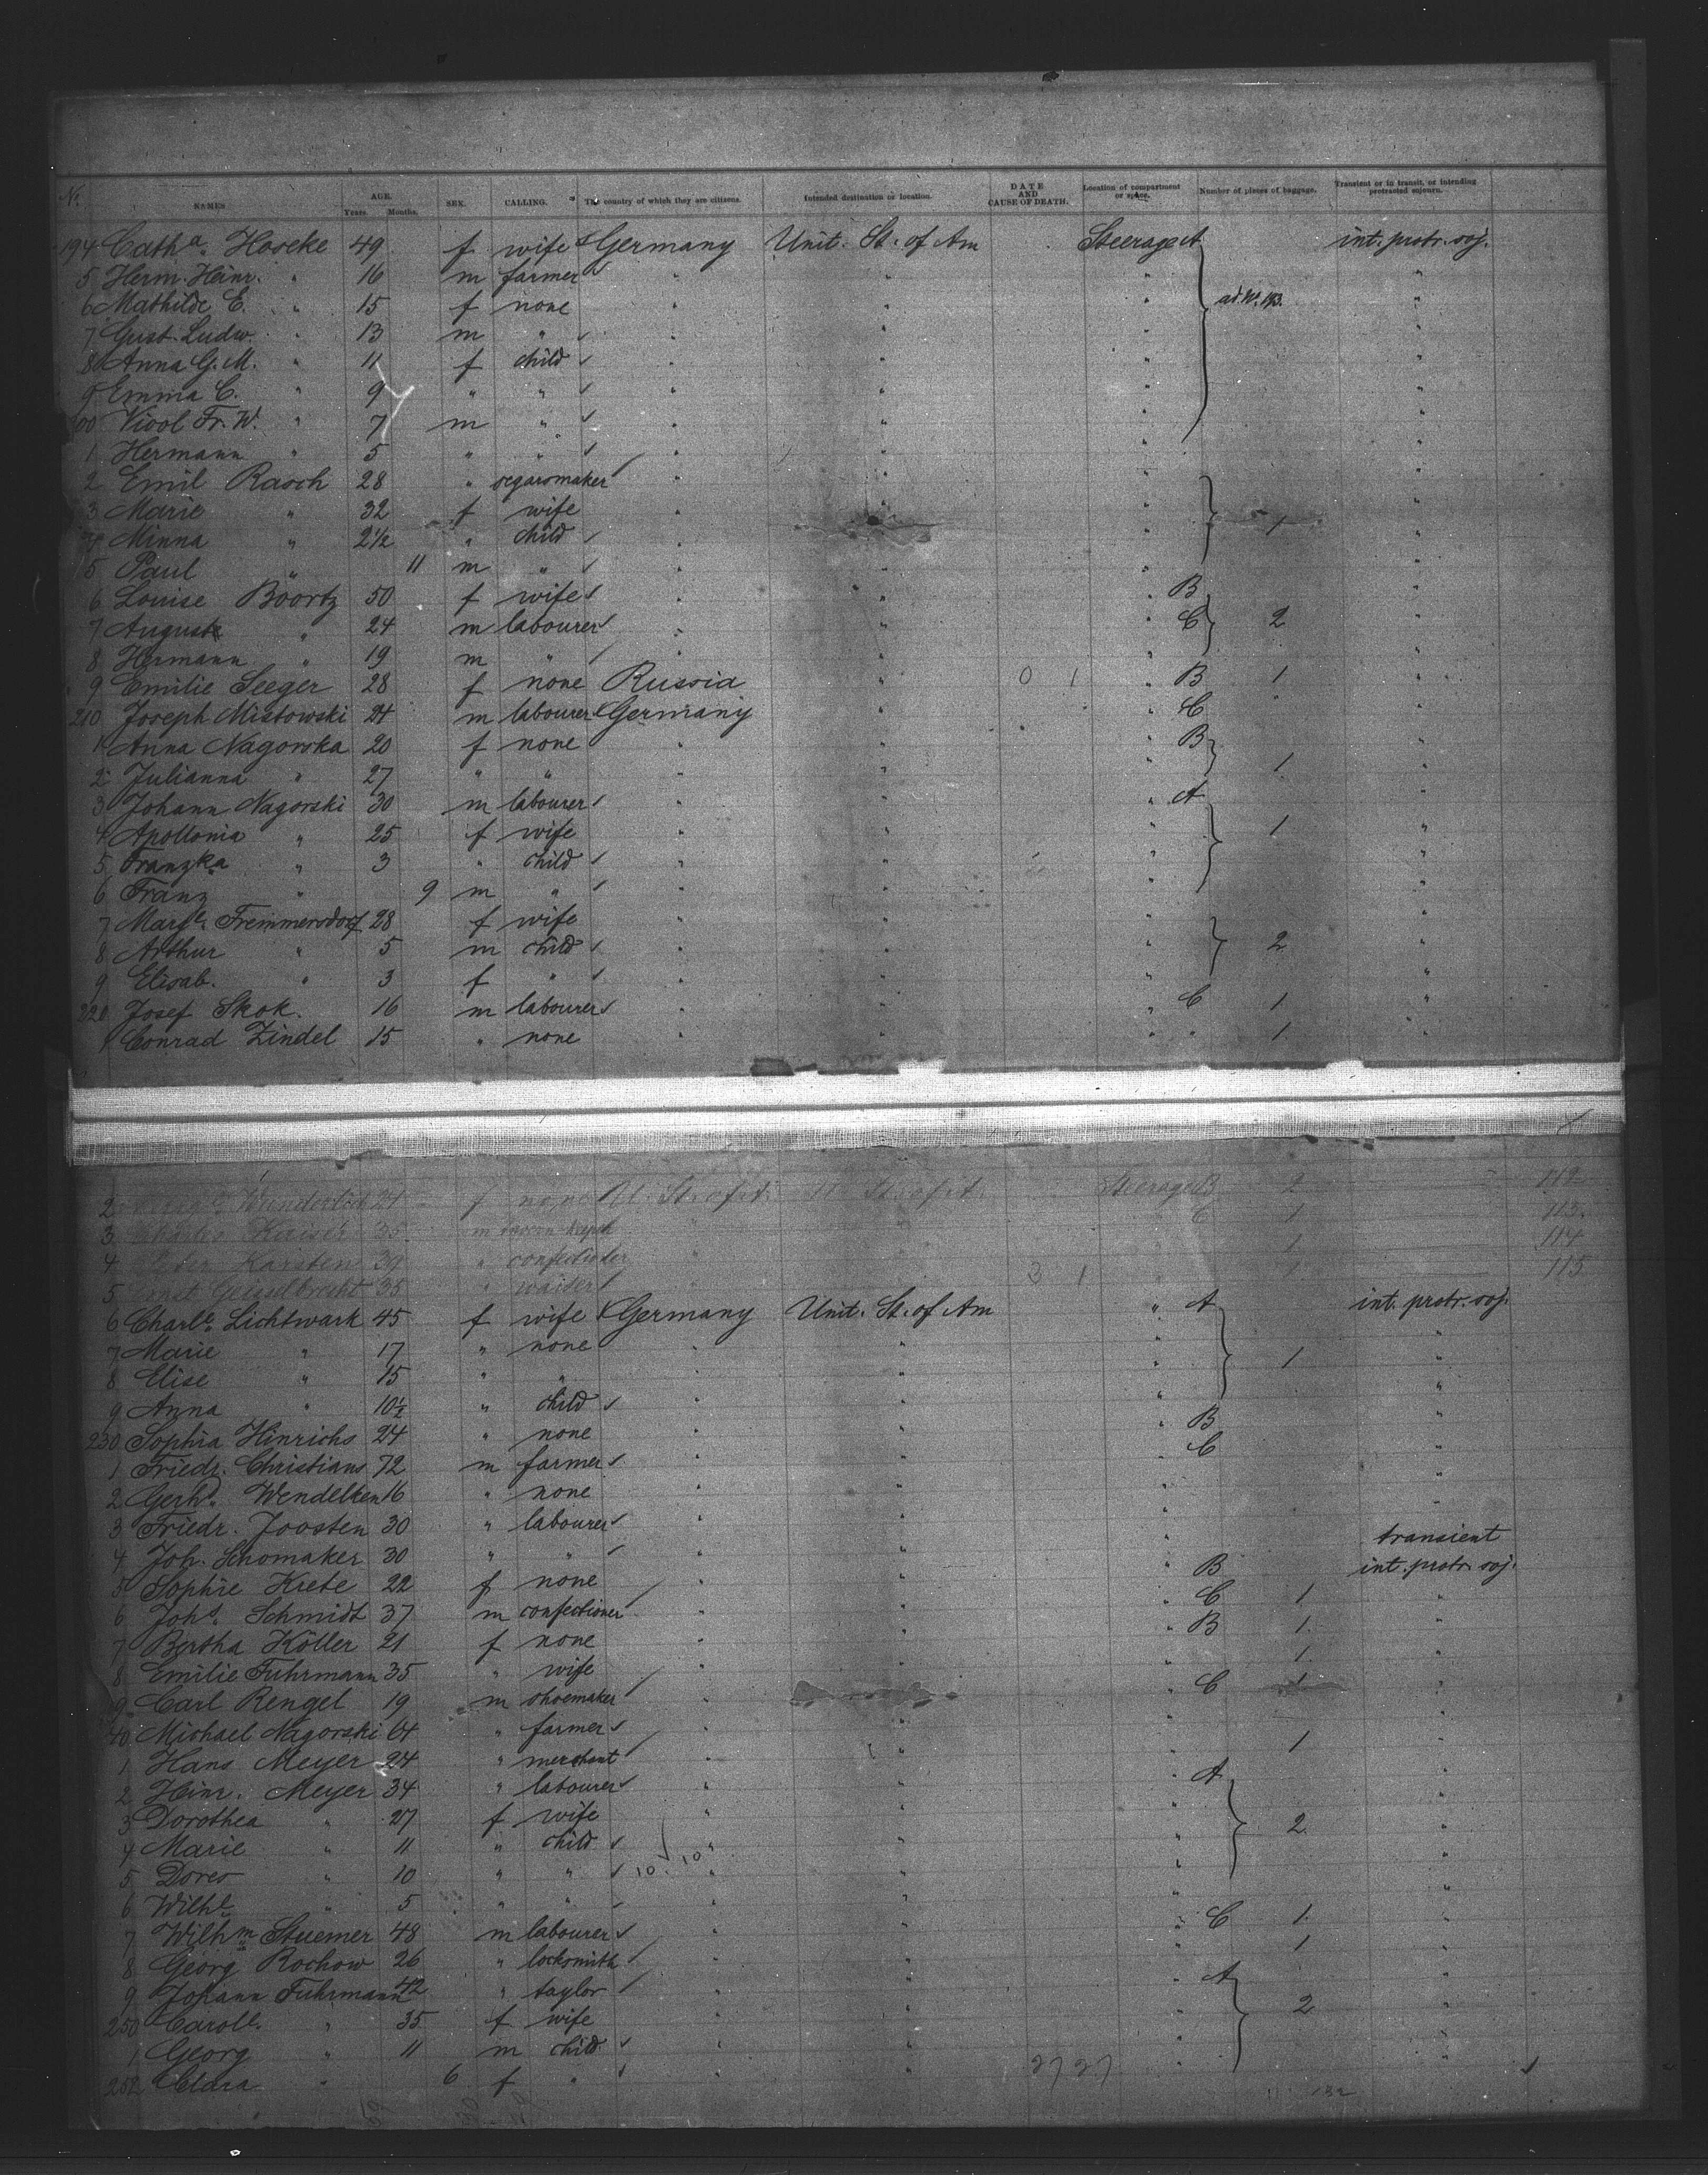 No. NAMES AGE. Years. Months. SEX. CALLING. The country of which they are citizens. Intended destination or location. DATE AND CAUSE OF DEATH. Location of compartment or space. Number of pieces of baggage. Transient or in transit, or intending protracted sojourn.
194 Cath.a Hoseke 49 f wife Germany Unit. St. of Am Steerage A int. protr. soj.
5 Herm. Heinr. " 16 m farmer " " " "
6 Mathilde E. " 15 f none " " " ad No. 193. "
7 Gust. Ludw. " 13 m " " " " "
8 Anna G. M. " 11 f child " " " "
9 Emma C. " 9 " " " " " "
Fr. W. " 7 m " " " " "
1 Hermann " 5 " " " " " "
2 Emil Rasch 28 " segarsmaker " " " "
3 Marie " 32 f wife " " " 1 "
4 Minna " 2½ " child " " " "
5 Paul " 11 m " " " " "
6 Louise Boortz 50 f wife " " " B "
7 August " 24 m labourer " " " C 2 "
8 Hermann " 19 m " " " " "
9 Emilie Seeger 28 f none Russia " 0 1 " B 1 "
210 Joseph Mistowski 24 m labourer Germany " " C "
1 Anna Nagorska 20 f none " " " B "
2 Julianna " 27 " " " " " 1 "
3 Johann Nagorski 30 m labourer " " " A "
4 Apollonia " 25 f wife " " " 1 "
5 Franzka " 3 " child " " " "
6 Franz " 9 m " " " " "
7 Margte. Fremmersdorf 28 f wife " " " "
8 Arthur " 5 m child " " " 2 "
9 Elisab. " 3 f " " " " "
220 Josef Skok. 16 m labourer " " " C 1 "
1 Conrad Zindel 15 " none " " " " 1 "
2 Wunderlich 21 f none U. St. of A. U. St. of A. Steerage B 2 112
3 Charles Kaiser 35 m " C 1 113.
4 Karsten 39 " confectioner " 1 114
5 Geisselbrecht 38 " waiter 3 1 " 1 115
6 Charlte. Lichtwark 45 f wife Germany Unit. St. of Am " A int. protr. soj.
7 Marie " 17 " none " " " "
8 Elise " 15 " " " " " 1 "
9 Anna " 10½ " child " " " "
230 Sophia Hinrichs 24 " none " " " B "
1 Friedr. Christians 72 m farmer " " C "
2 Gerhd. Wendelken 16 " none " " " "
3 Friedr. Joosten 30 " labourer " " " "
4 Joh. Schomaker 30 " " " " " transient
5 Sophie Krete 22 f none " " " B int. protr. soj.
6 Johs. Schmidt 37 m confectioner " " " C 1 "
7 Bertha Köller 21 f none " " " B 1. "
8 Emilie Fuhrmann 35 " wife " " " 1. "
9 Carl Rengel 19 m shoemaker " " C 1 "
40 Michael Nagorski 64 " farmer " " " "
1 Hans Meyer 24 " merchant " " " 1 "
2 Heinr. Meyer 34 " labourer " " " A "
3 Dorothea " 27 f wife " " " 2 "
4 Marie " 11 " child " " " "
5 Dores " 10 " " 10. 10 " " " "
6 Wilhe. " 5 " " " " " "
7 Wilhm. Stuemer 48 m labourer " " " C 1. "
8 Georg Rochow 26 " locksmith " " " 1 "
9 Johann Fuhrmann 42 " taylor " " " A "
250 Carole. " 35 f wife " " " 2 "
1 Georg " 11 m child " " " "
252 Clara " 6 f " " " 27 27 " "
132